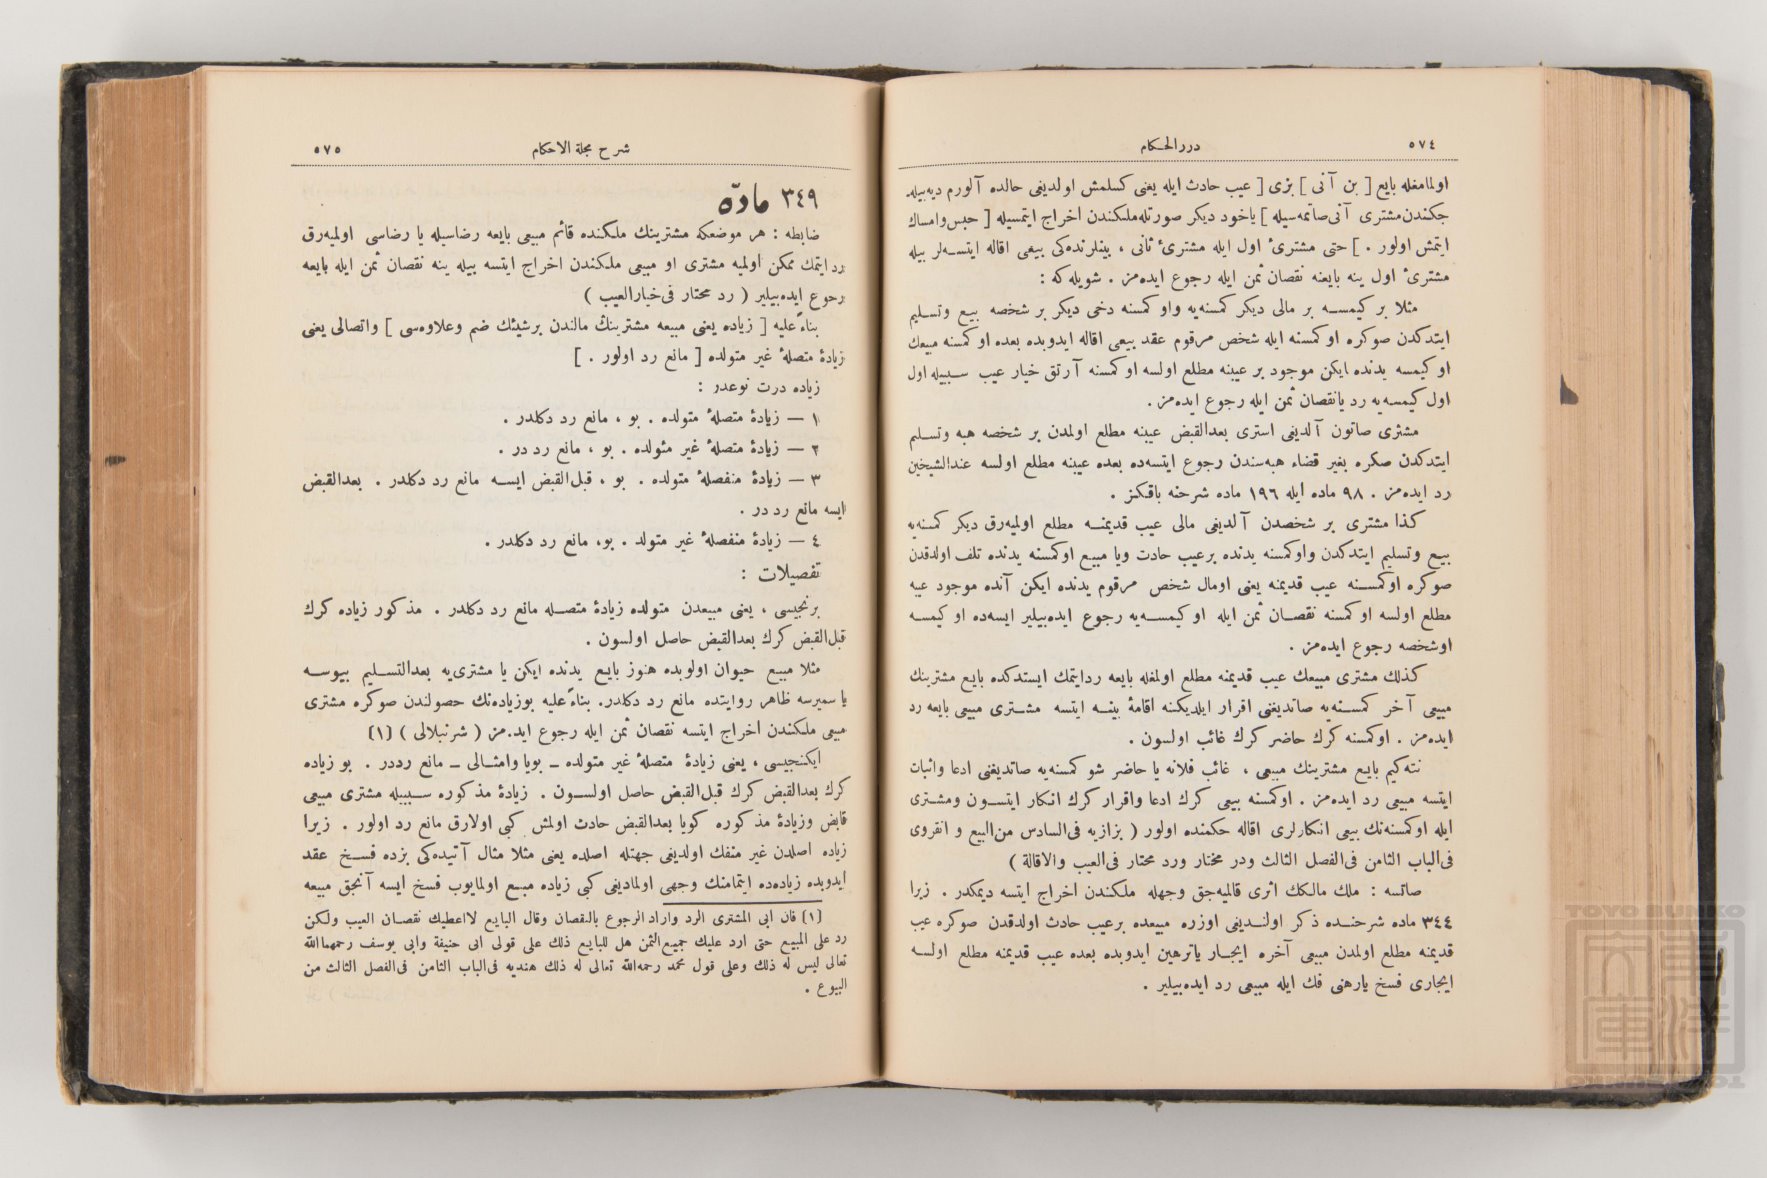 ٥٧٤
دررالحكام
اولمامغله بايع [ بن آنى ] بزى [ عيب حادث ايله يعنى كسلمش اولديغى حالده آلورم ديه‌بيله‌
جكندن مشترى آنى صاتمه‌سيله ] ياخود ديكر صورتله ملكندن اخراج ايتمسيله [ حبس وامساك
ايتمش اولور . ] حتى مشترئ اول ايله مشترئ ثانى ، بينلرنده‌كى بيعى اقاله ايتسه‌لر بيله
مشترئ اول ينه بايعنه نقصان ثمن ايله رجوع ايده‌مز . شويله كه :
مثلا بر كيمسه بر مالى ديكر كمسنه‌يه واو كمسنه دخى ديكر بر شخصه بيع وتسليم
ايتدكدن صوكره اوكمسنه ايله شخص مرقوم عقد بيعى اقاله ايدوبده بعده اوكمسنه مبيعك
اوكيمسه يدنده ايكن موجود بر عيبنه مطلع اولسه اوكمسنه آرتق خيار عيب سببيله اول
اول كيمسه‌يه رد يانقصان ثمن ايله رجوع ايده‌مز .
مشترى صاتون آلديغى استرى بعدالقبض عيبنه مطلع اولمدن بر شخصه هبه وتسليم
ايتدكدن صكره بغير قضاء هبه‌سندن رجوع ايتسه‌ده بعده عيبنه مطلع اولسه عندالشيخين
رد ايده‌مز . ٩٨ ماده ايله ١٩٦ ماده شرحنه باقكز .
كذا مشترى بر شخصدن آلديغى مالى عيب قديمنه مطلع اولميه‌رق ديكر كمسنه‌يه
بيع وتسليم ايتدكدن واوكمسنه يدنده برعيب حادث ويا مبيع اوكمسنه يدنده تلف اولدقدن
صوكره اوكمسنه عيب قديمنه يعنى اومال شخص مرقوم يدنده ايكن آنده موجود عيبه
مطلع اولسه اوكمسنه نقصان ثمن ايله اوكيمسه‌يه رجوع ايده‌بيلير ايسه‌ده او كيمسه
اوشخصه رجوع ايده‌مز .
كذلك مشترى مبيعك عيب قديمنه مطلع اولمغله بايعه ردايتمك ايستدكده بايع مشترينك
مبيعى آخر كمسنه‌يه صاتديغنى اقرار ايلديكنه اقامۀ بينه ايتسه مشترى مبيعى بايعه رد
ايده‌مز . اوكمسنه كرك حاضر كرك غائب اولسون .
نته‌كيم بايع مشترينك مبيعى ، غائب فلانه يا حاضر شو كمسنه‌يه صاتديغنى ادعا واثبات
ايتسه مبيعى رد ايده‌مز . اوكمسنه بيعى كرك ادعا واقرار كرك انكار ايتسون ومشترى
ايله اوكمسنه‌نك بيعى انكارلرى اقاله حكمنده اولور ( بزازيه فى‌السادس من‌البيع و انقروى
فى‌الباب الثامن فى‌الفصل الثالث ودر مختار ورد محتار فى‌العيب والاقالة )
صاتسه : ملك مالكك اثرى قالميه‌جق وجهله ملكندن اخراج ايتسه ديمكدر . زيرا
٣٤٤ ماده شرحنده ذكر اولنديغى اوزره مبيعده برعيب حادث اولدقدن صوكره عيب
قديمنه مطلع اولمدن مبيعى آخره ايجار ياترهين ايدوبده بعده عيب قديمنه مطلع اولسه
ايجارى فسخ يارهنى فك ايله مبيعى رد ايده‌بيلير .
شرح مجلة الاحكام
٥٧٥
٣٤٩ مادّه
ضابطه : هر موضعكه مشترينك ملكنده قائم مبيعى بايعه رضاسيله يا رضاسى اولميه‌رق
رد ايتمك ممكن اولميه مشترى او مبيعى ملكندن اخراج ايتسه بيله ينه نقصان ثمن ايله بايعه
رجوع ايده‌بيلير ( رد محتار فى‌خيارالعيب )
بناءً عليه [ زياده يعنى مبيعه مشترينك مالندن برشيئك ضم وعلاوه‌سى ] واتصالى يعنى
زيادۀ متصلۀ غير متولده [ مانع رد اولور . ]
زياده درت نوعدر :
١ — زيادۀ متصلۀ متولده . بو ، مانع رد دكلدر .
٢ — زيادۀ متصلۀ غير متولده . بو ، مانع رد در .
٣ — زيادۀ منفصلۀ متولده . بو ، قبل‌القبض ايسه مانع رد دكلدر . بعدالقبض
ايسه مانع رد در .
٤ — زيادۀ منفصلۀ غير متولد . بو، مانع رد دكلدر .
تفصيلات :
برنجيسى ، يعنى مبيعدن متولده زيادۀ متصله مانع رد دكلدر . مذكور زياده كرك
قبل‌القبض كرك بعدالقبض حاصل اولسون .
مثلا مبيع حيوان اولوبده هنوز بايع يدنده ايكن يا مشترى‌يه بعدالتسليم بيوسه
يا سميرسه ظاهر روايتده مانع رد دكلدر. بناءً عليه بوزياده‌نك حصولندن صوكره مشترى
مبيعى ملكندن اخراج ايتسه نقصان ثمن ايله رجوع ايده‌مز ( شرنبلالى ) (١)
ايكنجيسى ، يعنى زيادۀ متصلۀ غير متولده ـ بويا وامثالى ـ مانع رددر . بو زياده
كرك بعدالقبض كرك قبل‌القبض حاصل اولسون . زيادۀ مذكوره سببيله مشترى مبيعى
قابض وزيادۀ مذكوره كويا بعدالقبض حادث اولمش كبى اولارق مانع رد اولور . زيرا
زياده اصلدن غير منفك اولديغى جهتله اصلده يعنى مثلا مثال آتيده‌كى بزده فسخ عقد
ايدوبده زياده‌ده ايتمامنك وجهى اولماديغى كبى زياده مبيع اولمايوب فسخ ايسه آنجق مبيعه
(١) فان ابى المشترى الرد واراد الرجوع بالنقصان وقال البايع لااعطيك نقصان العيب ولكن
رد على المبيع حتى ارد عليك جميع‌الثمن هل للبايع ذلك على قولى ابى حنيفة وابى يوسف رحمهماالله
تعالى ليس له ذلك وعلى قول محمد رحمه‌الله تعالى له ذلك هنديه فى‌الباب الثامن فى‌الفصل الثالث من
البيوع .
TOYO BUNKO